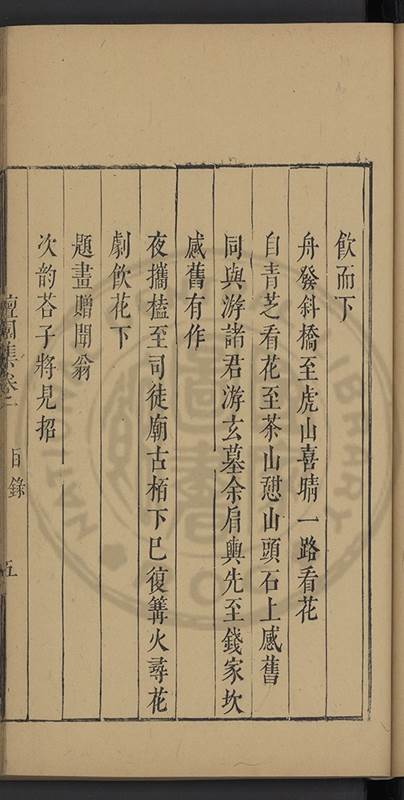 飲而下
舟發斜橋至虎山喜晴一路看花
自青芝看花至茶山憇山頭石上感舊
同與游諸君游玄墓余肩輿先至錢家坎
感舊有作
夜攜榼至司徒廟古栢下巳復篝火尋花
劇飲花下
題畫贈聞翁
次韵荅子將見招
園集卷 目錄 五